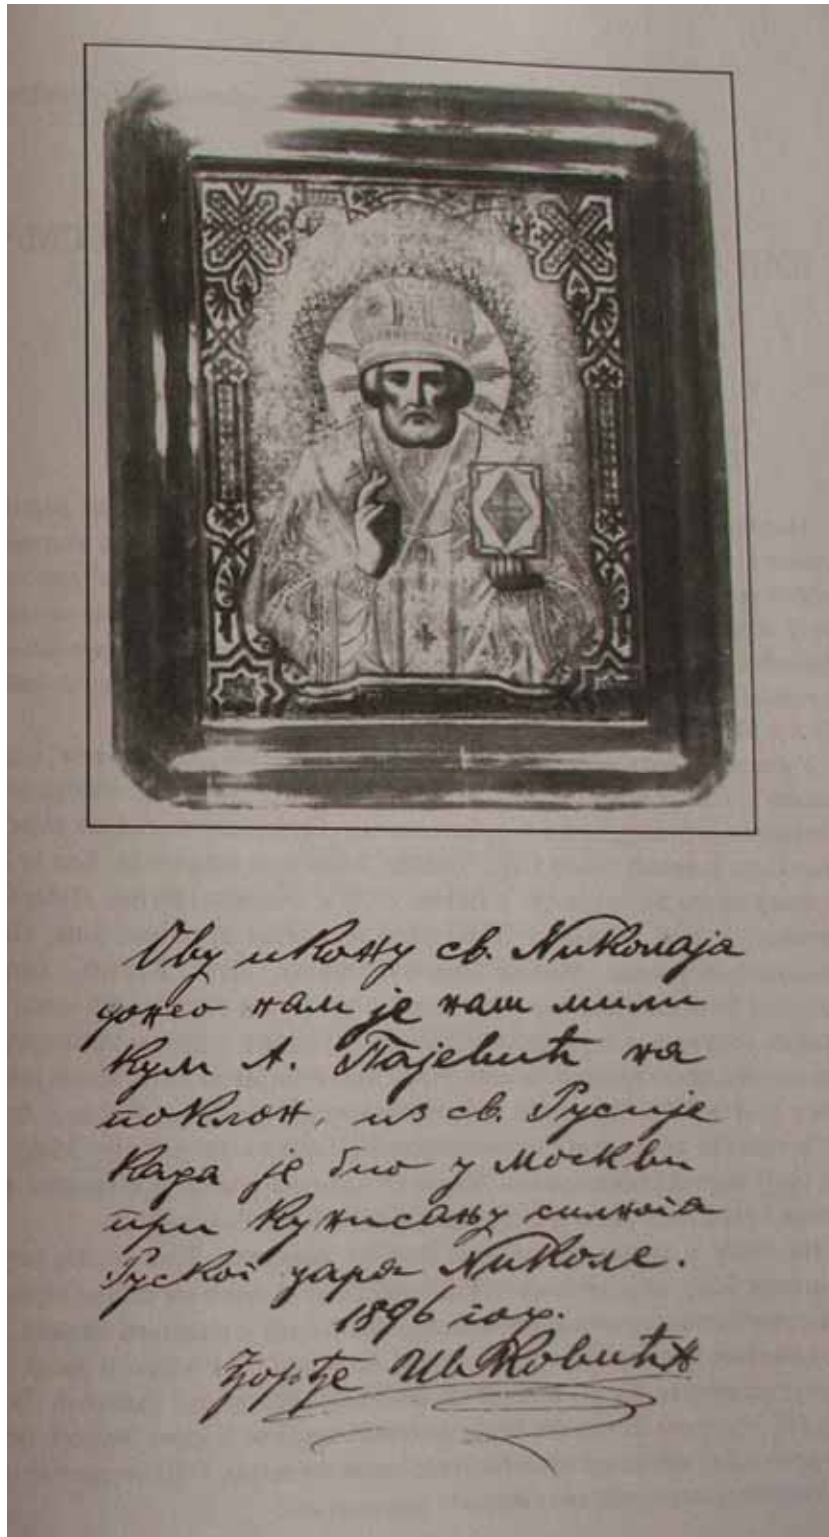 Ову икону св. Николаја
донео нам је наш мили
кум А. Пајевић на
поклон, из св. Русије
када је био у Москви
при крунисању силнога
Руског цара Николе.
1896 год.
Ђорђе